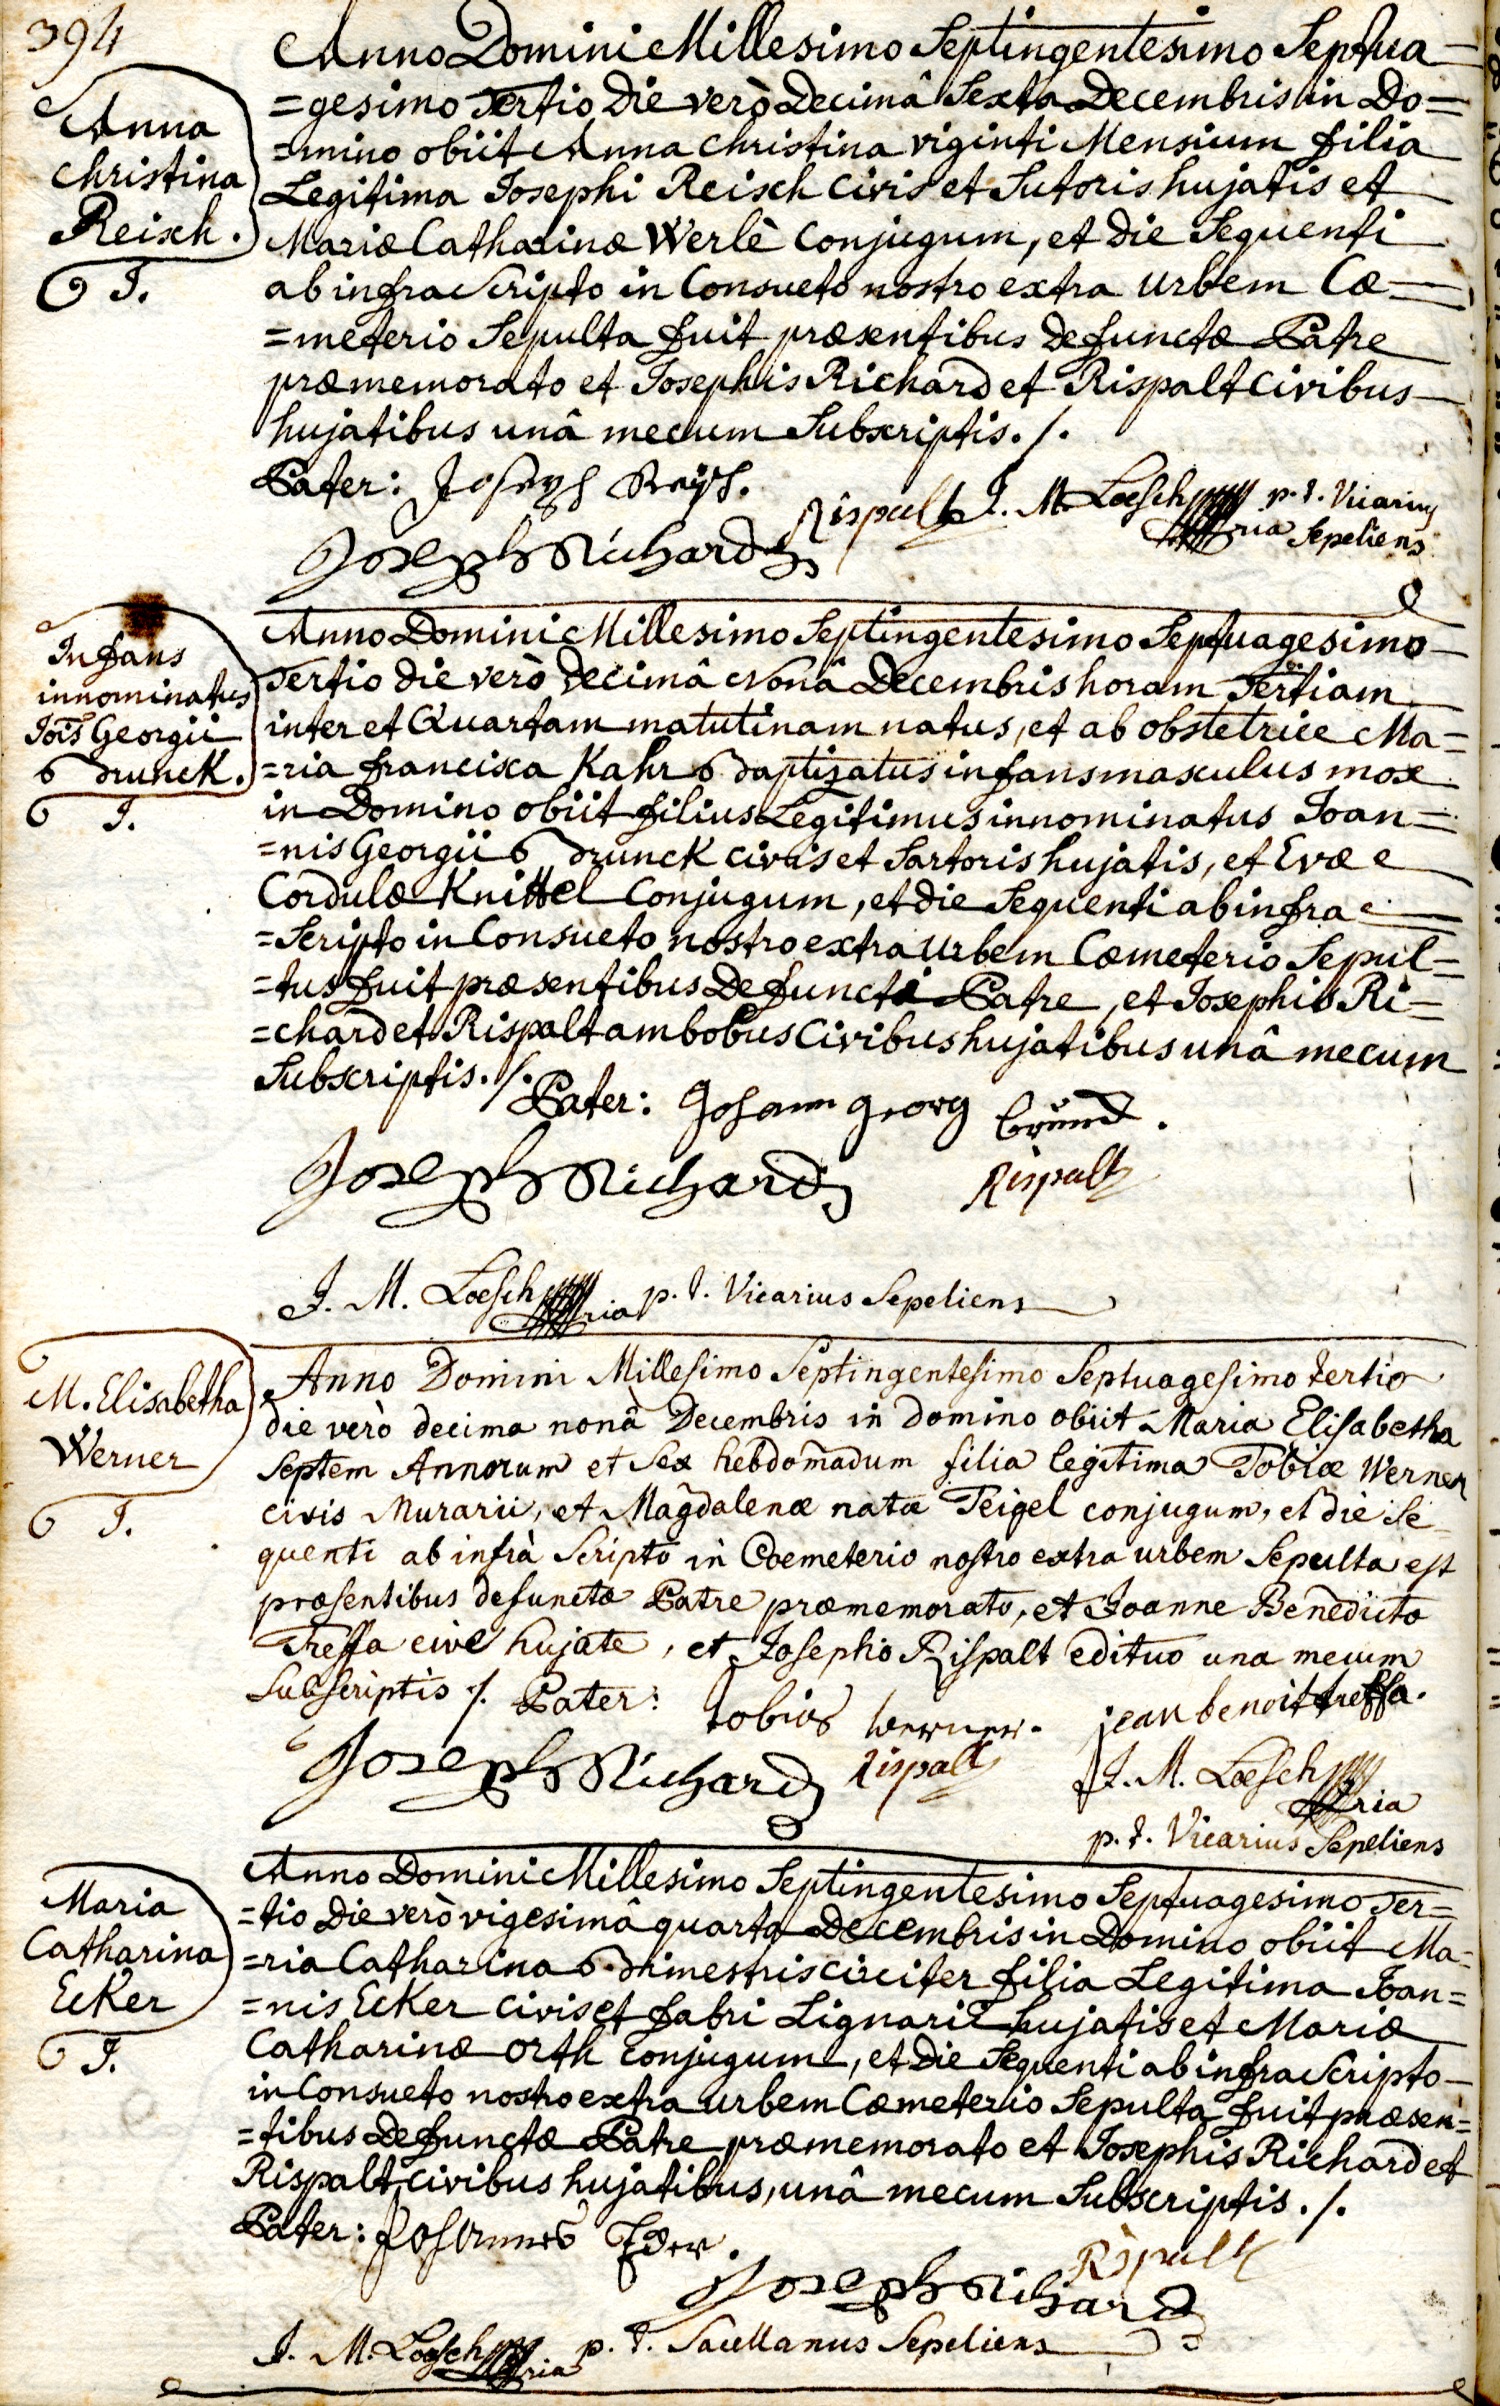 394
Anno Domini Millesimo Septingentesimo Septua-
=gesimo Tertio die verò Decimâ Sexta Decembris in Do=
=mino obiit Anna Christina viginti Mensium filia
Legitima Josephi Reisch Civis et Sutoris hujatis et
Mariæ Catharinæ Werlè Conjugum, et die Sequenti
ab infra Scripto in Consueto nostro extra urbem Cœ=
=meterio Sepulta fuit præsentibus defunctæ Patre
præmemorato et Josephis Richard et Rispalt Civibus
hujatibus unâ mecum Subscriptis ./.
Anna
Christina
Reisch.
J.
Pater: Joseph Reisch.
Joseph Richard
Rispalt J. M. Loesch p. t. Vicarius
mpria Sepeliens
Anno Domini Millesimo Septingentesimo Septuagesimo
Tertio die verò decimâ Nonâ Decembris horam Tertiam
inter et Quartam matutinam natus, et ab obstetrice Ma=
=ria francisca Kahr baptizatus infans masculus mox
in Domino obiit filius Legitimus innominatus Joan=
=nis Georgii brunck civis et Sartoris hujatis, et Evæ
Cordulæ Knittel Conjugum, et die Sequenti ab infra
=Scripto in Consueto nostro extra urbem Cœmeterio Sepul=
=tus fuit præsentibus Defuncti Patre, et Josephis Ri=
=chard et Rispalt ambobus Civibus hujatibus unâ mecum
Subscriptis ./.
Infans
innominatus
Jois Georgii
brunck.
J.
Pater: Johann georg brund.
Joseph Richard
Rispalt
J. M. Loesch mpria p. t. Vicarius Sepeliens
Anno Domini Millesimo Septingentesimo Septuagesimo tertio
die verò decima nonâ Decembris in domino obiit Maria Elisabetha
Septem Annorum et Sex hebdomadum filia legitima Tobiæ Werner
civis Murarii, et Magdalenæ natæ Teigel conjugum, et die Se
quenti ab infrà Scripto in Coemeterio nostro extra urbem Sepulta est
præsentibus defunctæ Patre præmemorato, et Joanne Benedicto
Treffa cive hujate, et Josepho Rispalt edituo una mecum
Subscriptis ./. Pater: tobias werner.
M. Elisabetha
Werner
J.
jean benoit treffa.
Joseph Richard
Rispalt
J. M. Loesch
mpria
p. t. Vicarius Sepeliens
Anno Domini Millesimo Septingentesimo Septuagesimo Ter=
=tio die verò vigesimâ quarta Decembris in Domino obiit Ma=
=ria Catharina bimestris circiter filia Legitima Joan=
=nis Ecker Civis et fabri Lignarii hujatis et Mariæ
Catharinæ Orth Conjugum, et die Sequenti ab infra Scripto
in Consueto nostro extra urbem Cœmeterio Sepulta fuit præsen=
=tibus Defunctæ Patre præmemorato et Josephis Richard et
Rispalt Civibus hujatibus, unâ mecum Subscriptis ./.
Maria
Catharina
Ecker
J.
Pater: Johannes
Rispalt
Joseph Richard
J. M. Loesch mpria p. t. Sacellanus Sepeliens